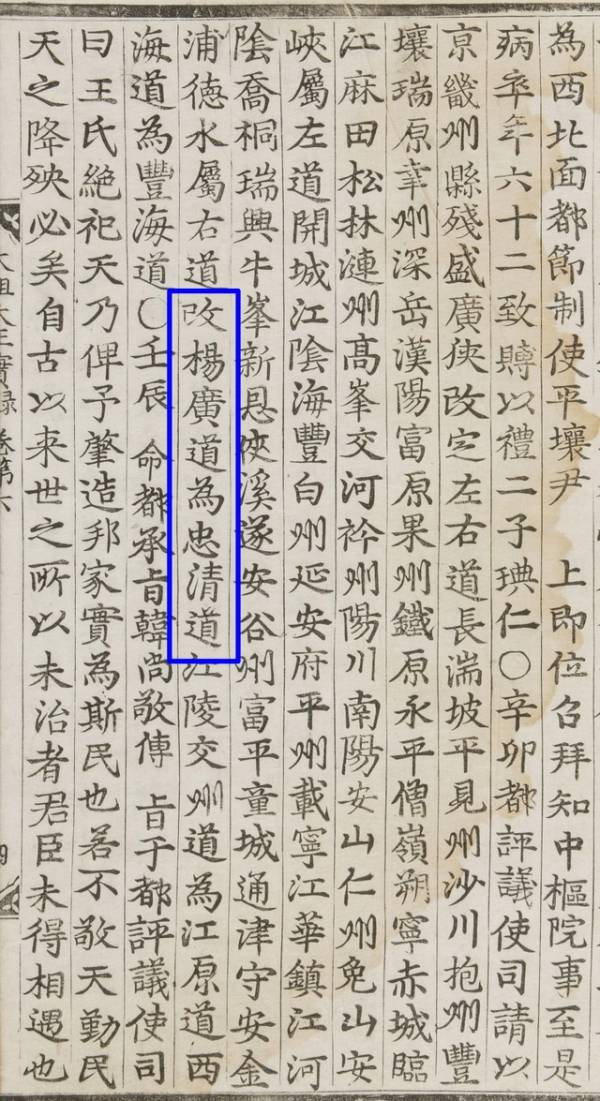 為西北面都節制使平壤尹 上即位召拜知中樞院事至是
病卒年六十二致賻以禮二子琠仁〇辛卯都評議使司請以
京畿州縣殘盛廣狹改定左右道長湍坡平見州沙川抱州豐
壤瑞原幸州深岳漢陽富原果州鐵原永平僧嶺朔寧赤城臨
江麻田松林漣州高峯交河衿州陽川南陽安山仁州兔山安
峽屬左道開城江陰海豐白州延安府平州載寧江華鎮江河
陰喬桐瑞興牛峯新恩俠溪遂安谷州富平童城通津守安金
浦德水屬右道改楊廣道為忠清道江陵交州道為江原道西
海道為豐海道〇壬辰 命都承旨韓尚敬傳 旨于都評議使司
曰王氏絶祀天乃俾予肇造邦家實為斯民也若不敬天勤民
天之降殃必矣自古以来世之所以未治者君臣未得相遇也